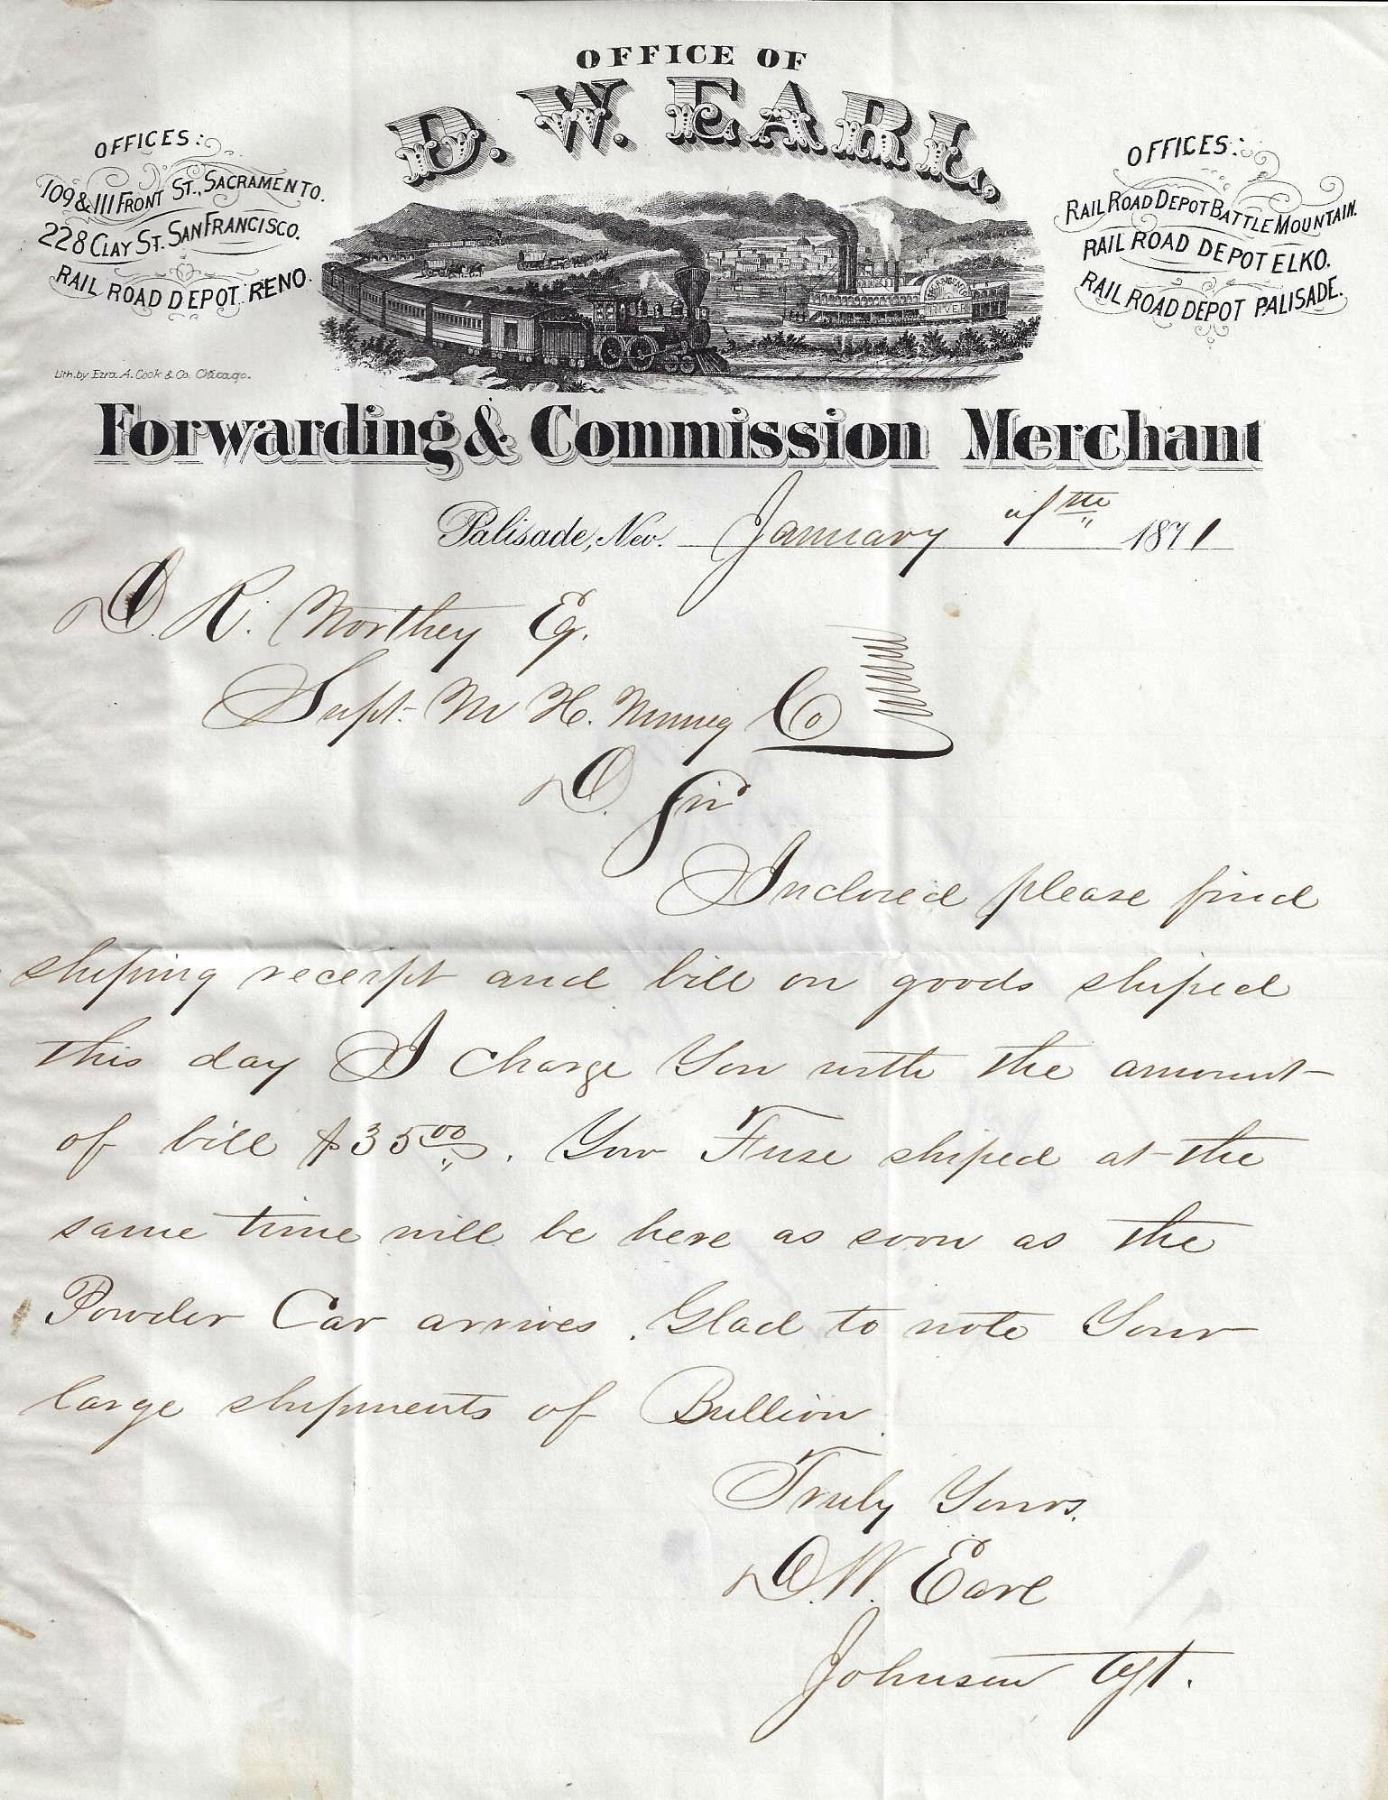 OFFICE OF
D. W. EARL,
OFFICES:
109 & 111 FRONT ST., SACRAMENTO.
228 CLAY ST. SAN FRANCISCO.
RAIL ROAD DEPOT RENO.
OFFICES:
RAIL ROAD DEPOT BATTLE MOUNTAIN.
RAIL ROAD DEPOT ELKO.
RAIL ROAD DEPOT PALISADE.
RIVER
Lith. by Ezra A. Cook & Co. Chicago.
Forwarding & Commission Merchant
Palisade, Nev. January 1871
D. R. Northey Eq.
Supt. M H. Mining Co
D. Sir
Inclosed please find
shiping receipt and bill on goods shiped
this day I charge You with the amount
of bill $35 00. Your Fuse shiped at the
same time will be here as soon as the
Powder Car arrives. Glad to note Your
large shipments of Bullion.
Truly Yours.
D. W. Earl
Johnson Agt.